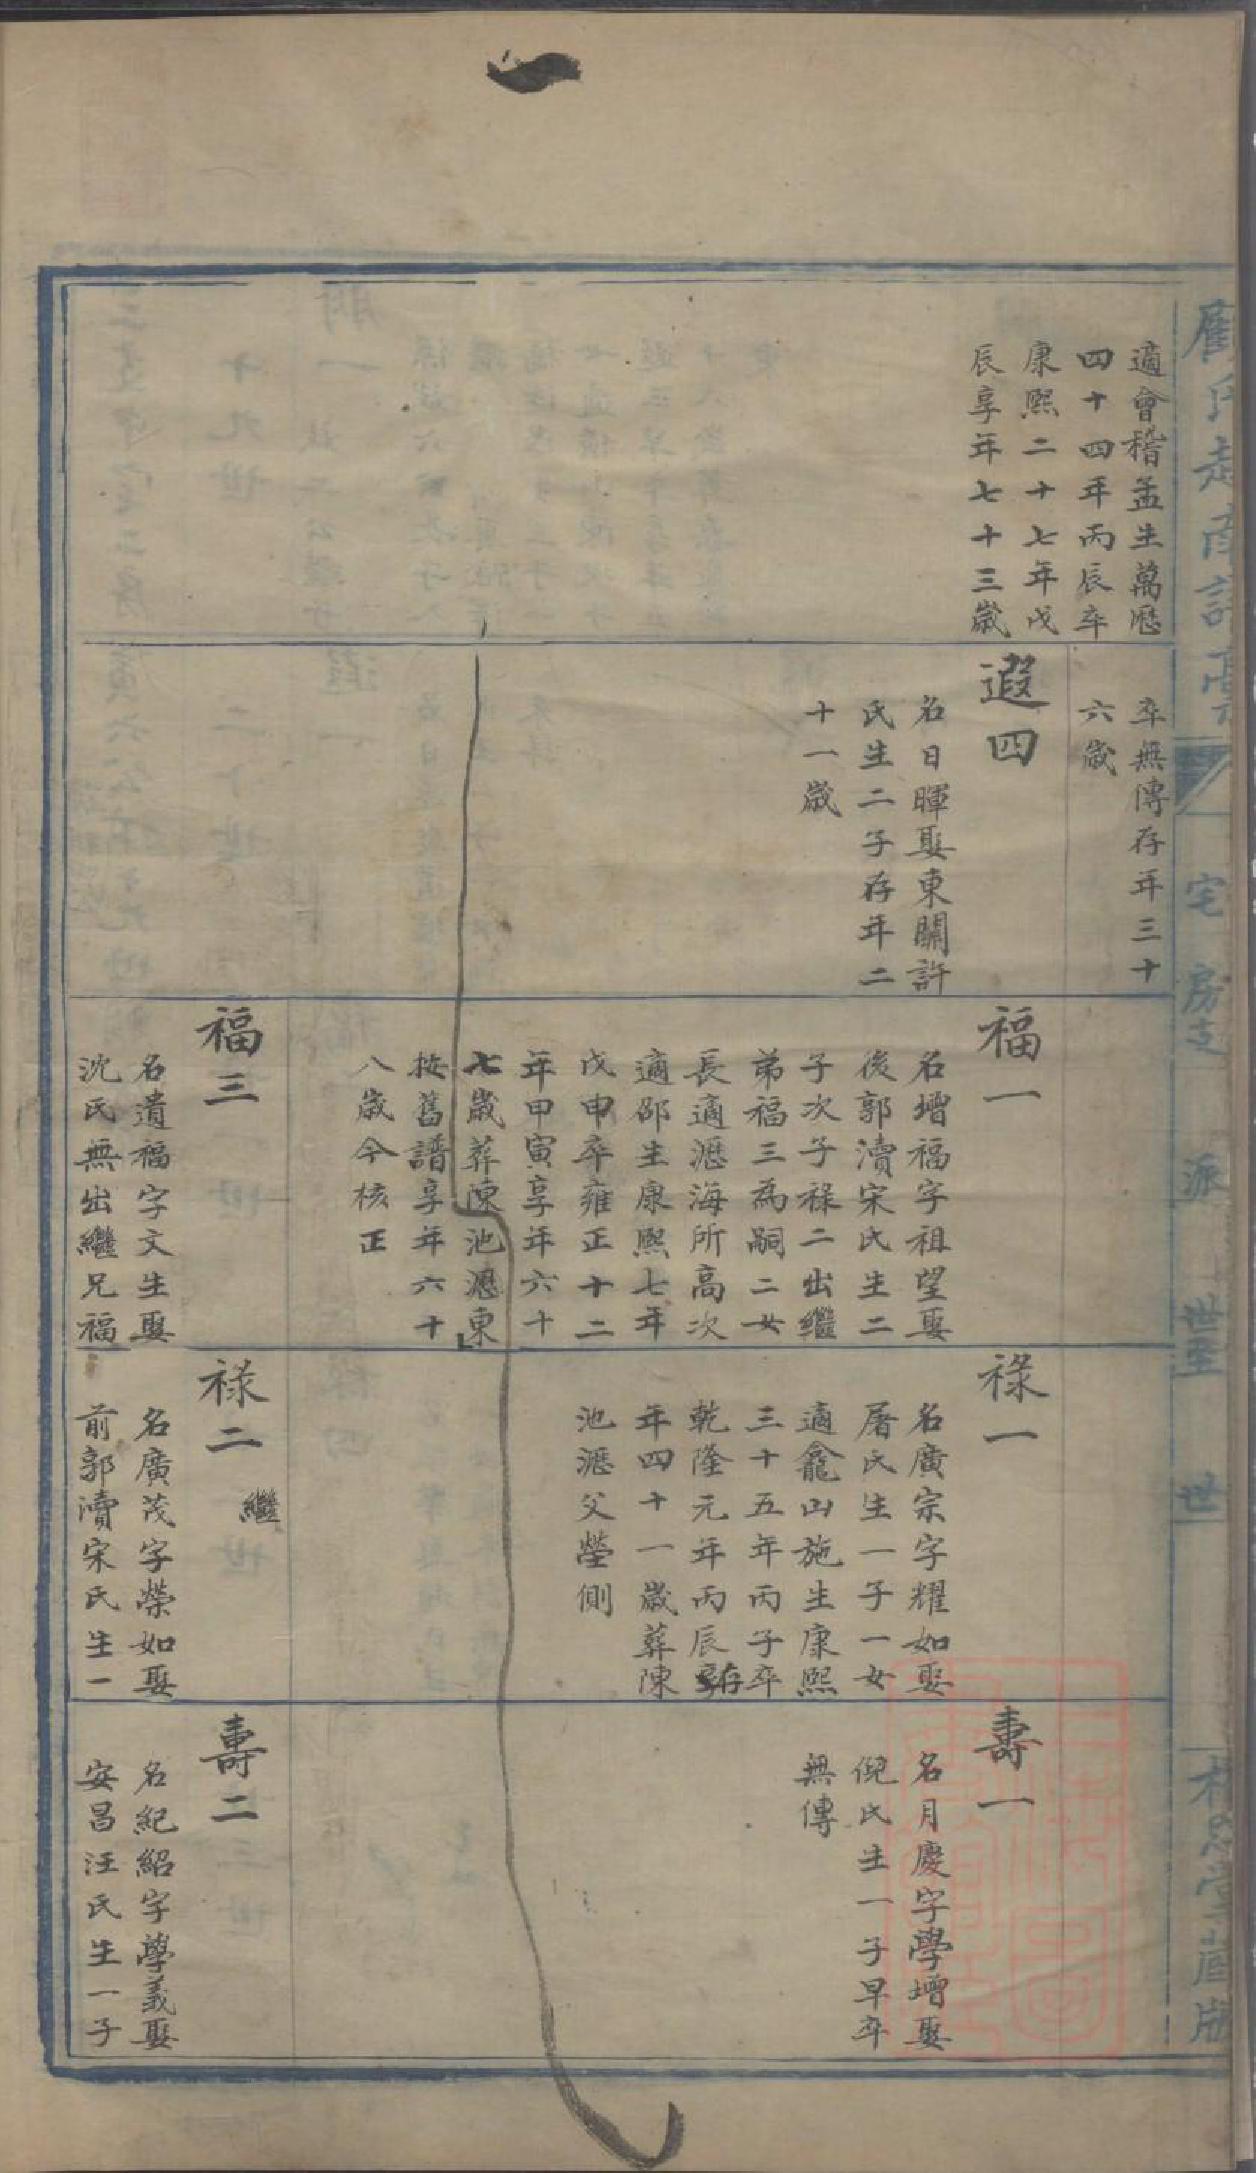 適會稽孟生萬歷
四十四年丙辰卒
康熙二十七年戊
辰享年七十三歲
卒無傳存年三十
六歲
遐四
名日暉娶東關許
氏生二子存年二
十一歲
福一
名增福字祖望娶
後郭瀆宋氏生二
子次子祿二出繼
弟福三為嗣二女
長適瀝海所高次
適邵生康熙七年
戊申卒雍正十二
年甲寅享年六十
七歲葬陳池漊東
按舊譜享年六十
八歲今核正
福三
名遺福字文生娶
沈氏無出繼兄福
祿一
名廣宗字耀如娶
屠氏生一子一女
適龕山施生康熙
三十五年丙子卒
乾隆元年丙辰存
年四十一歲葬陳
池漊父塋側
祿二
繼
名廣茂字榮如娶
前郭瀆宋氏生一
壽一
名月慶字學增娶
倪氏生一子早卒
無傳
壽二
名紀紹字學義娶
安昌汪氏生一子
宅
房支
派
世至
世